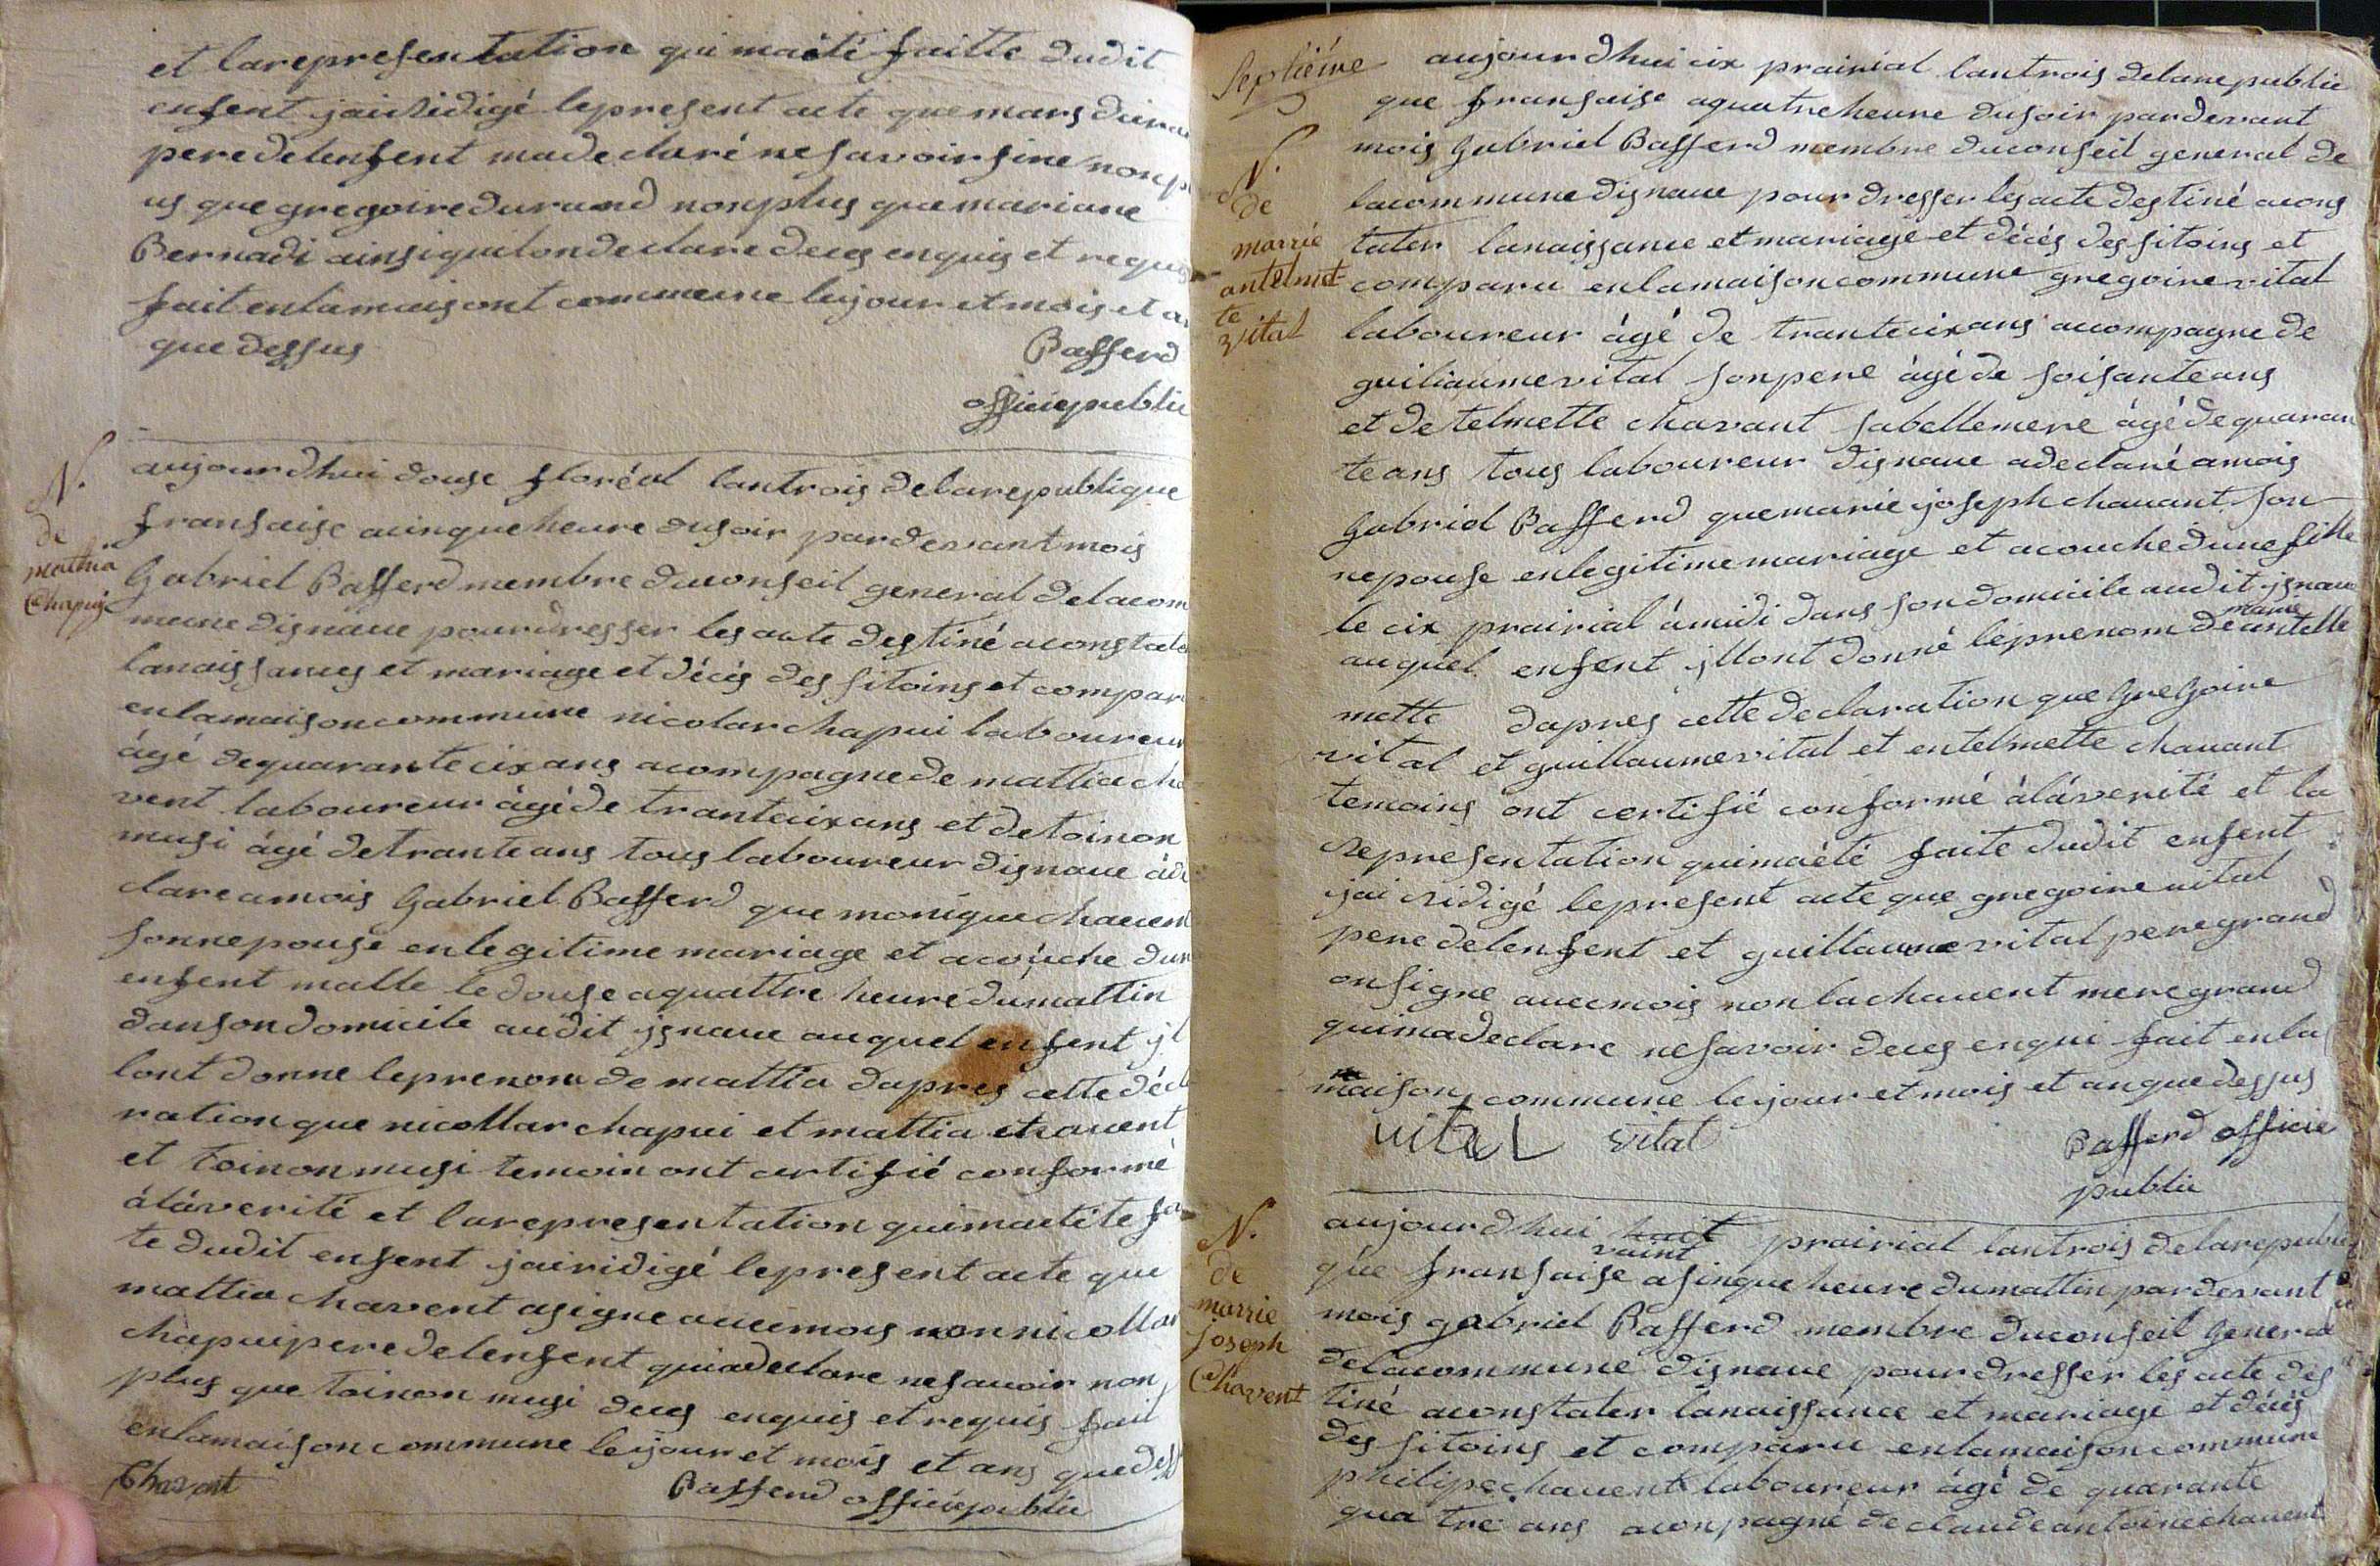 et larepresentation qui maété faitte dudit
enfent jairidigé lepresent acte que mars
pere delenfent madeclaré nesavoir sine non
us que gregoire durand nonplus que mariane
Bernadi ainsi quilondeclare deces enquis et requis
fait enlamaisont commeune lejour et mois et
que dessus
Bafferd
officiepublic
N.
de
mathia
Chapuy
aujourdhui douse floréal lantrois delarepublique
fransaise acinqueheure dusoir pardevantmois
Gabriel Bafferd membre duconseil general delacom
mune disnaue pourdresser les acte destiné aconstate
lanaissances et mariage et décés des sitoins et compar
enlamaisoncommune nicolarchapui laboureur
ágé dequarantecixans acompagnede mattia cha
vent laboureur ágéde trantecixans et detoinon
musi ágé detranteans tous laboureur disnaue ádé
clare amois Gabriel Bafferd que moniquechauent
sonnepouse enlegitime mariage et acouche dun
enfent malle ledouse aquattre heure dumattin
dansondomicile audit jsnaue auquel enfent jl
lont donne leprenom de mattia dapres cette décla
ration que nicollar chapui et mattia chauent
et toinonmusi temoin ont certifié conformé
áláverité et larepresentation quimaetéte fa
te dudit enfent jairidigé lepresent acte que
mattia chavent asigne auecmois non nicollar
chapuipere delenfent quiadeclare nesauoir non
plus que toinon musi deces enquis et requis fait
enlamaison commune lejour et mois et ans quedess
Chavent
Bafferd officiepublic
Septiéme
N.
de
marrie
antelmet
te
vital
aujourdhui cix prairial lantrois delarepublic
que fransaise aquatreheure dusoir pardevant
mois Gabriel Bafferd membre duconseil general de
lacommune disnaue pour dresser les acte destiné acons
tater lanaissance et mariage et décés des sitoins et
comparu enlamaisoncommune gregoire vital
laboureur ágé de trantecixans accompagne de
guiliaume vital sonpere ágé de soisanteans
et de telmette chavant sabellemere ágé de quaran
teans tous laboureur disnaue adeclaré amois
Gabriel Bafferd quemarie joseph chauant son
nepouse enlegitime mariage et acouche dune fille
le cix prairial ámidi dans sondomicile audit jsnaue
auquel enfent jllont donné leprenom de marie antelle
mette dapres cette declaration que GreGoire
vital et guillaumevital et entelmette chauant
temoins ont certifié conformé áláverité et la
representation quimaété faite dudit enfent
jai ridigé lepresent acte que gregoire uital
pere delenfent et guillaume vital peregrand
onsigne auecmois non lachauent meregrand
quimadeclare nesavoir deces enqui fait enla
maison commune lejour et mois et anquedessus
vital vital
Bafferd officie
public
N.
de
marrie
joseph
Chavent
aujourdhui huit vaint prairial lantrois delarepubli
que fransaise asinque heure dumattin pardevant
mois gabriel Bafferd membre duconseil General
delacommune disnaue pourdresser les acte des
tiné aconstater lanaissance et mariage et décés
des sitoins et comparu enlamaisoncommune
philipechauent laboureur ágé de quarante
quatre ans aconpagné declaudeantoinechauent